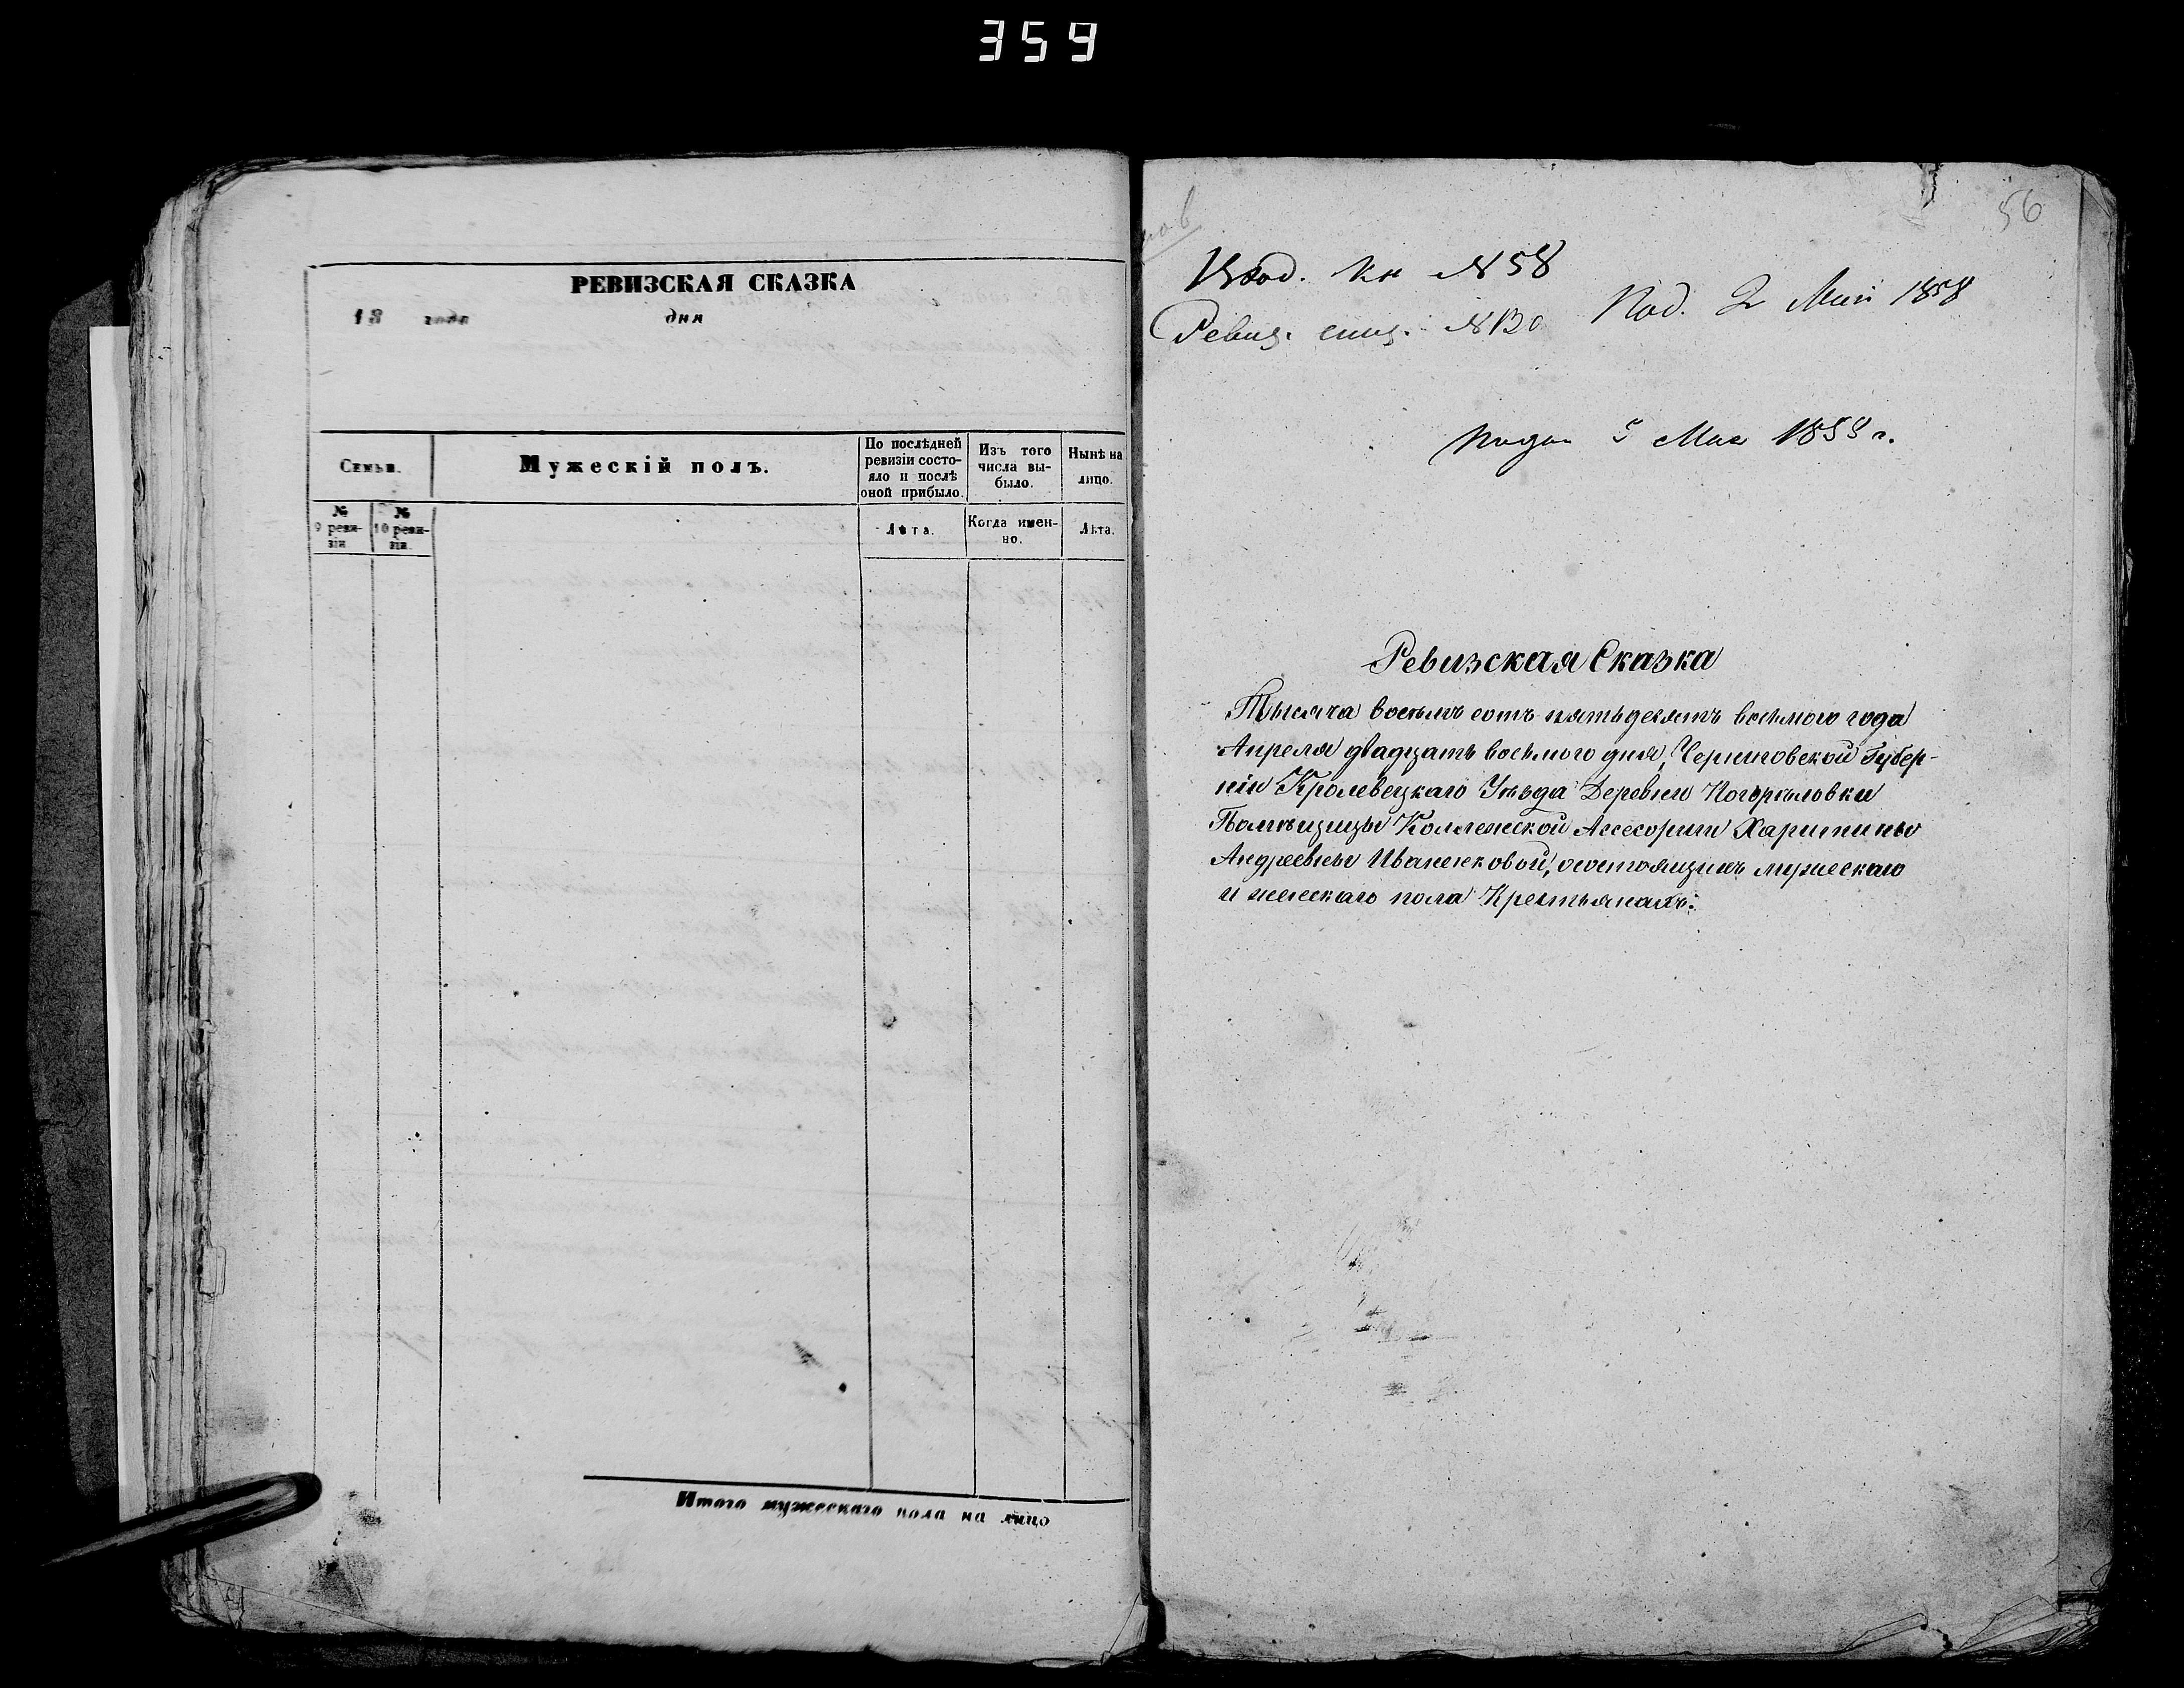 359
РЕВИЗСКАЯ СКАЗКА
18 года дня
Семьи.
Мужескій полъ.
По послѣдней
ревизіи состо-
яло и послѣ
оной прибыло.
Изъ того
числа вы-
было.
Нынѣ на
лицо.
№
9 реви-
зіи
№
10 реви-
зіи.
Лѣта.
Когда имен-
но.
Лѣта.
Итого мужескаго пола на лицо
56
Вход. Кн № 58
Ревиз. № 130
Под. 2 Мая 1858
Мая 1858 г.
Ревизская Сказка
Тысяча восемь сотъ пятьдесятъ восьмого года
Апреля двадцать восьмого дня, Черниговской Губер-
ніи Кролевецкаго Уѣзда Деревни Погорѣловки
Помѣщицы Коллежской Ассесорши Харитины
Андреевны Иваненковой, о состоящихъ мужескаго
и женскаго пола Крестьянахъ.